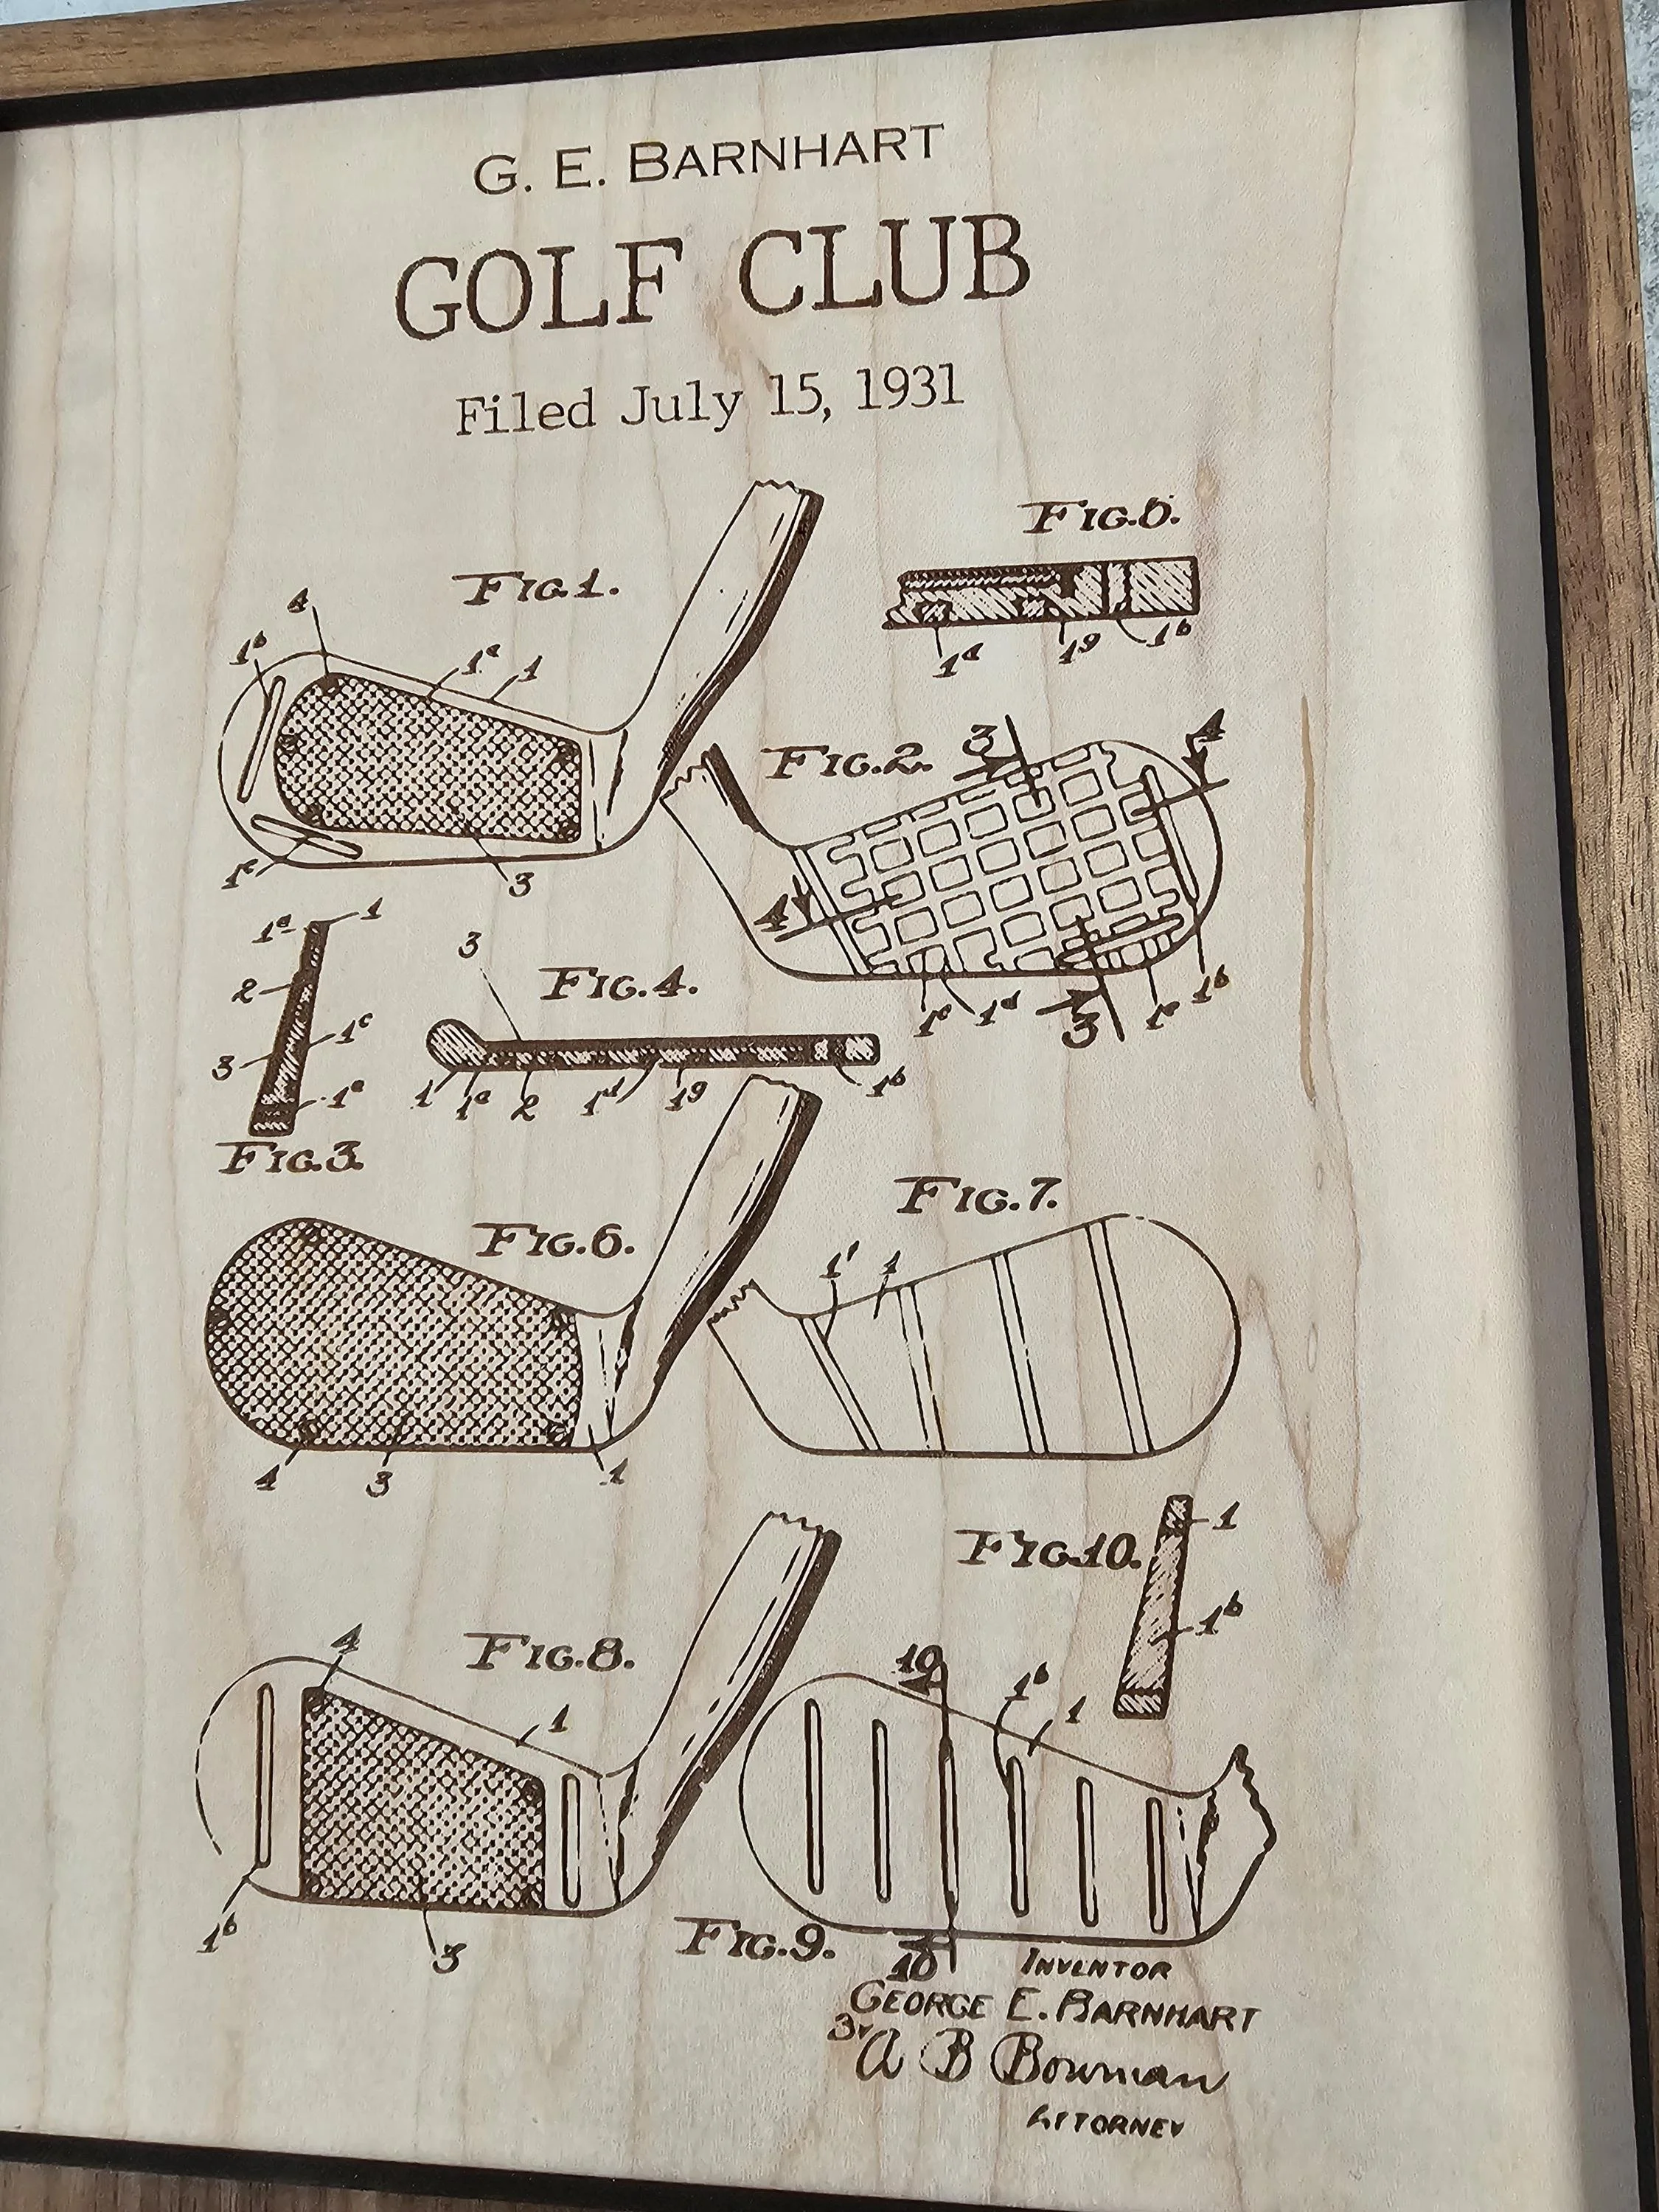 G. E. BARNHART
GOLF CLUB
Filed July 15, 1931
FIG.1.
4
1ᵇ
1ᵃ
1
1ᵉ
3
FIG.5.
1ᵈ
1ᵍ
1ᵇ
FIG.2.
3
4
4
1ᶜ
1ᵈ
3
1ᵉ
1ᵇ
1ᵃ
1
2
1ᶜ
3
1ᵉ
FIG.3.
3
FIG.4.
1
1ᵃ
2
1ᵈ
1ᵍ
1ᵇ
FIG.6.
4
3
1
FIG.7.
1'
1
FIG.8.
4
1
1ᵇ
3
FIG.10.
1
1ᵇ
10
1ᵇ
1
FIG.9.
10
INVENTOR
GEORGE E. BARNHART
A B Bowman
ATTORNEY